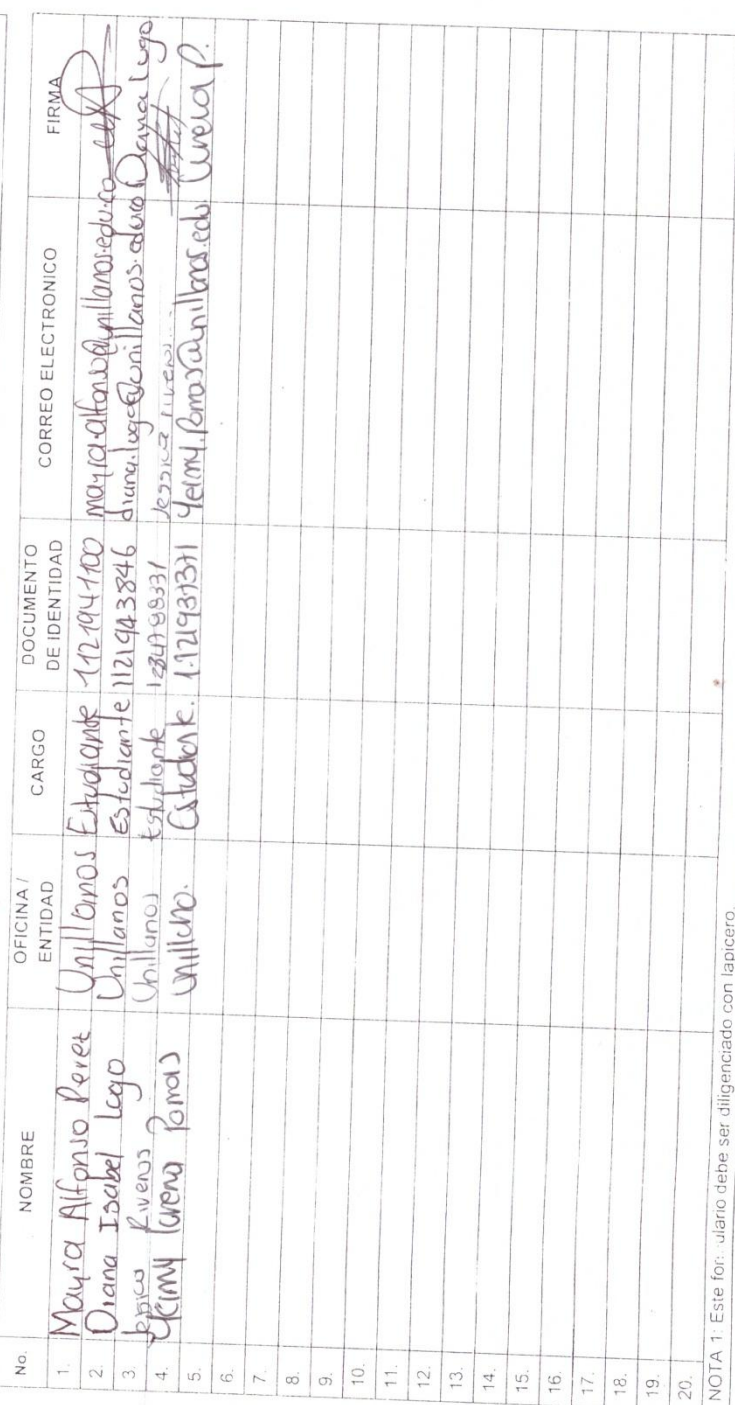 No. NOMBRE OFICINA / ENTIDAD CARGO DOCUMENTO DE IDENTIDAD CORREO ELECTRONICO FIRMA
1. Mayra Alfonso Perez Unillanos Estudiante 1121941100 mayra.alfonso@unillanos.edu.co
2. Diana Isabel Lugo Unillanos Estudiante 1121943846 diana.lugo@unillanos.edu.co Diana Lugo
3. Jessica Riveros Unillanos Estudiante Jessica riveros
4. Yeimy Lorena Pomas Unillano. Estudiante. 1.121937371 Yeimy.Pomas@unillanos.edu Lorena P.
5.
6.
7.
8.
9.
10.
11.
12.
13.
14.
15.
16.
17.
18.
19.
20.
NOTA 1: Este for ulario debe ser diligenciado con lapicero.